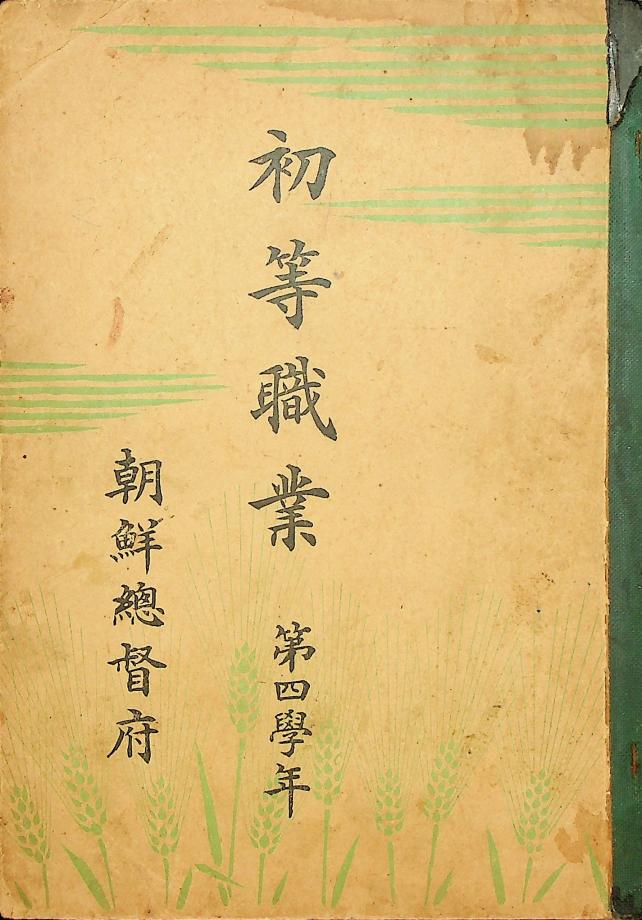 初等職業 第四學年
朝鮮總督府